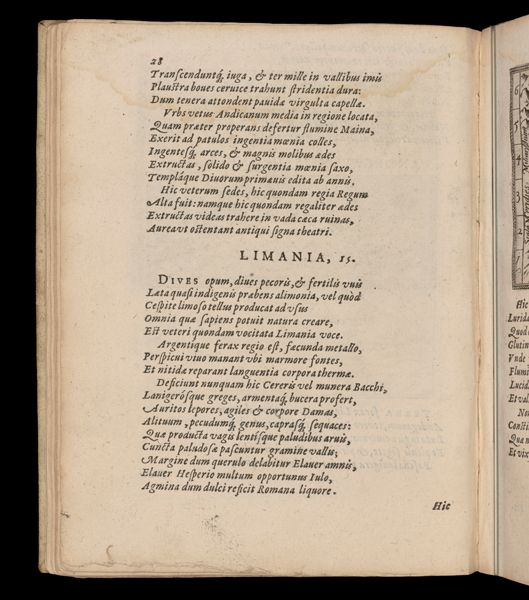 28
Transcenduntq́, iuga, & ter mille in vallibus imis
Plaustra boues ceruice trahunt stridentia dura:
Dum tenera attondent pauidæ virgulta capellæ.
Vrbs vetus Andicanum media in regione locata,
Quam præter properans defertur flumine Maina,
Exerit ad patulos ingentia mœnia colles,
Ingentesq́, arces, & magnis molibus ædes
Extructas, solido & surgentia mœnia saxo,
Templáque Diuorum primæuis edita ab annis.
Hic veterum sedes, hic quondam regia Regum
Alta fuit: namque hic quondam regaliter ædes
Extructas videas trahere in vada cæca ruinas,
Aurea vt ostentant antiqui signa theatri.
LIMANIA, 15.
DIVES opum, diues pecoris, & fertilis vuis
Læta quasi indigenis præbens alimonia, vel quòd
Cespite limoso tellus producat ad vsus
Omnia quæ sapiens potuit natura creare,
Est veteri quondam vocitata Limania voce.
Argentique ferax regio est, fæcunda metallo,
Perspicui viuo manant vbi marmore fontes,
Et nitidæ reparant languentia corpora thermæ.
Deficiunt nunquam hic Cereris vel munera Bacchi,
Lanigerósque greges, armentaq́, bucera profert,
Auritos lepores, agiles & corpore Damas,
Alituum, pecudumq́, genus, caprasq́, sequaces:
Quæ producta vagis lentisque paludibus aruis,
Cuncta paludosæ pascuntur gramine vallis;
Margine dum querulo delabitur Elauer amnis,
Elauer Hesperio multum opportunus Iulo,
Agmina dum dulci reficit Romana liquore.
Hic
Hic
Lurida
Quod
Glutin
Vnde
Flumi
Lucid
Et val
Non
Consti
Quæ n
Et vix